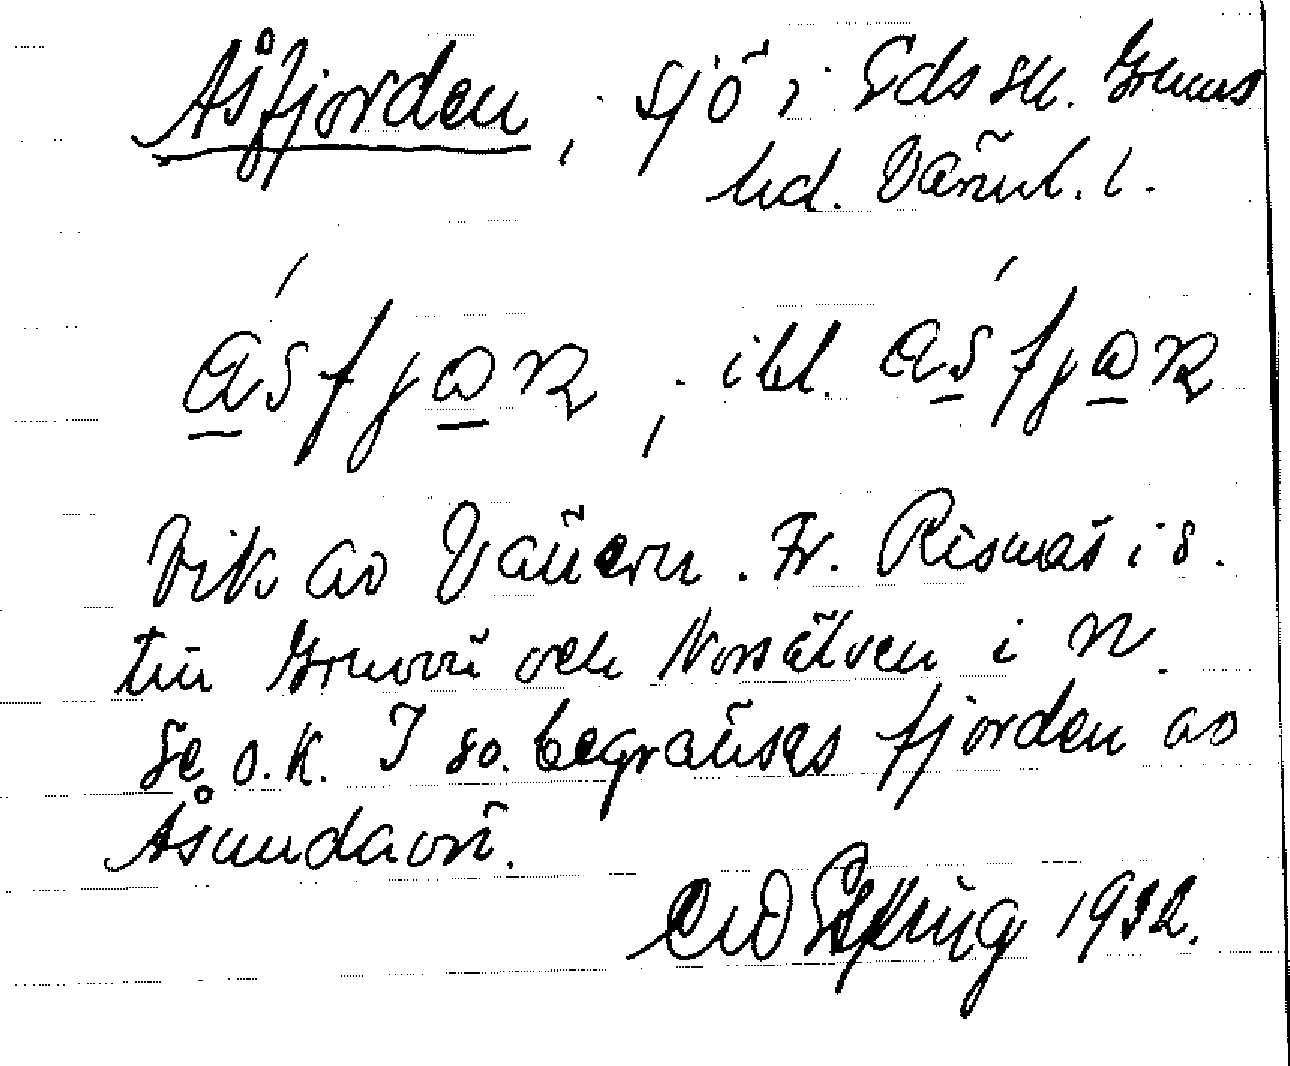 Åsfjorden, sjö i Eds sn. Grums
hd. Värml. l.
åsfjơn, ibl. åsfjơn
Vik av Vänern. Fr. Risnäs i s.
till Grumsö och Norsälven i n.
Se o.k. I so. begränses fjorden av
Åsundaön.
1932.